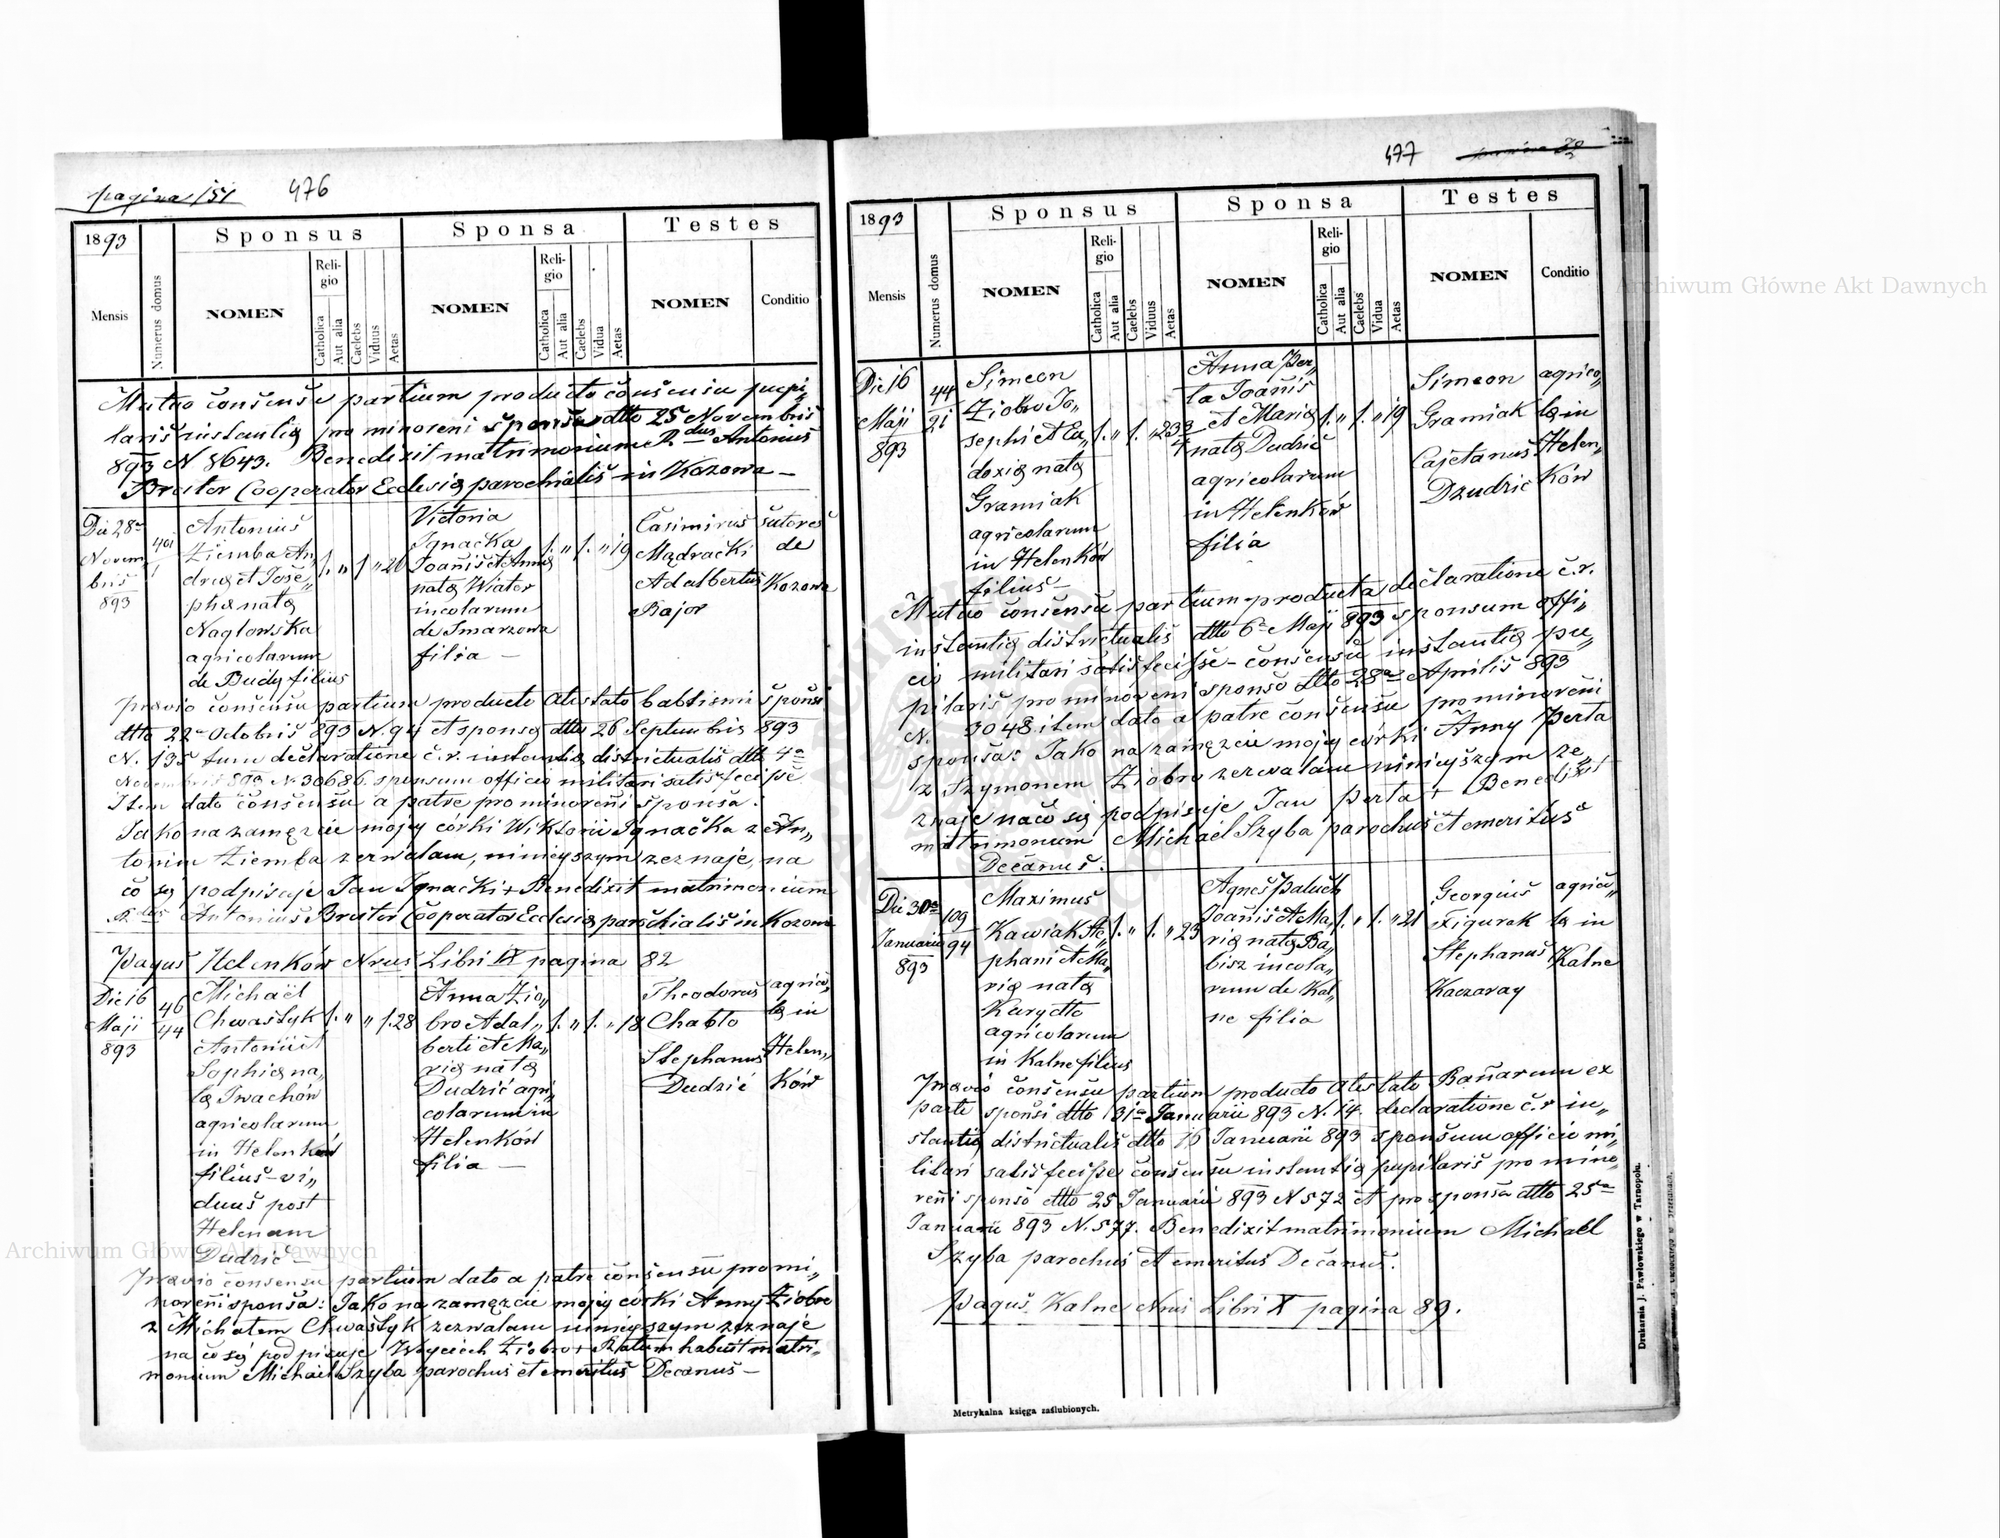 pagina 151
476
1893
Sponsus
Sponsa
Testes
Mensis
Numerus domus
NOMEN
Religio
Catholica
Aut alia
Caelebs
Viduus
Aetas
NOMEN
Religio
Catholica
Aut alia
Caelebs
Vidua
Aetas
NOMEN
Conditio
Mutuo consensu partium producto consensu pupi„
laris instantią pro minoreni sponsa dtto 25 Novembris
893 N 8643. Benedixit matrimonium R.dus Antonius
Breiter Cooperator Ecclesią parochialis in Kozowa —
Die 28a
Novem
bris
893
401
1
Antonius
Ziemba An„
dreą et Jose„
pha natą
Nagłowska
agricolarum
de Budy filius
1. „ 1 „ 26
Victoria
Ignacka
Joanis et Anną
natą Wiator
incolarum
de Smarzowa
filia —
1. „ 1. „ 19
Casimirus
Mądracki
Adalbertus
Bajor
sutores
de
Kozowa
Praevio consensu partium producto Atestato babtismi sponsi
dtto 22a Octobris 893 N. 94 et sponsą dtto 26 Septembris 893
N. 135 tum declaratione c.r. instantią districtualis dtto 4a
Novembris 893 N. 30686 sponsum officio militari satisfecisse
Item dato consensu a patre pro minoreni sponsa:
Jako na zamęzcie mojej córki Wiktorii Ignacka z An„
tonim Ziemba zezwalam, niniejszym zeznaje, na
co się podpisuje Jan Ignacki + Benedixit matrimonium
R.dus Antonius Breiter Cooperator Ecclesią parochialis in Kozowa
Pagus Helenków Nrus Libri IX pagina 82
Die 16
Maji
893
46
44
Michaël
Chwastyk
Antonii et
Sophią na„
tą Iwachów
agricolarum
in Helenków
filius - vi„
duus post
Helenam
Dudzic —
1. „ „ 1. 28
Anna Zio„
bro Adal„
berti et Ma„
rią natą
Dudzić agri„
colarum in
Helenków
filia —
1. „ 1. „ 18
Theodorus
Chabło
Stephanus
Dudzić
agrico„
lą in
Helen„
ków
Praevio consensu partium dato a patre consensu pro mi„
noreni sponsa: Jako na zamęzcie mojej córki Anny Ziobro
z Michałem Chwastyk zezwalam niniejszym zeznaje
na co się podpisuje Wojciech Ziobro + Ratum habuit matri„
monium Michael Szyba parochus et emeritus Decanus —
477
1893
Sponsus
Sponsa
Testes
Mensis
Numerus domus
NOMEN
Religio
Catholica
Aut alia
Caelebs
Viduus
Aetas
NOMEN
Religio
Catholica
Aut alia
Caelebs
Vidua
Aetas
NOMEN
Conditio
Die 16
Maji
893
44
21
Simeon
Ziobro Jo„
sephi et Eu„
doxią natą
Gramiak
agricolarum
in Helenków
filius —
1. „ 1. „ 23 3/4
Anna Per„
ta Joanis
et Marią
natą Dudzić
agricolarum
in Helenków
filia
1. „ 1. „ 19
Simeon
Gramiak
Cajetanus
Dzudzic
agrico„
lą in
Helen„
ków
Mutuo consensu partium producta declaratione c.r.
instantią districtualis dtto 6a Maji 893 sponsum offi„
cio militari satisfecisse - consensu instantią pu„
pilaris pro minoreni sponso dtto 28a Aprilis 893
N. 3048 item dato a patre consensu pro minoreni
sponsa: Jako na zamęzcie mojej córki Anny Perta
z Szymonem Ziobro zezwalam niniejszym ze„
znaje naco się podpisuje Jan Perta + Benedixit
matrimonium Michaël Szyba parochus et emeritus
Decanus.
Die 30a
Januarii
893
109
94
Maximus
Kawiak Ste„
phani et Ma„
rią natą
Kurydło
agricolarum
in Kalne filius
1. „ 1. „ 23
Agnes Paluch
Joanis et Ma„
rią natą Ba„
bisz incola„
rum de Kal„
ne filia
1. „ 1. „ 21
Georgius
Figurak
Stephanus
Kaczaray
agrico„
lą in
Kalne
Praevio consensu partium producto Atestato Banarum ex
parte sponsi dtto 31a Januarii 893 N. 14. declaratione c.r in„
stantią districtualis dtto 16 Januarii 893 sponsum officio mi„
litari satisfecisse consensu instantią pupilaris pro mino„
reni sponso dtto 25 Januarii 893 N 572 et pro sponsa dtto 25a
Januarii 893 N. 577. Benedixit matrimonium Michaël
Szyba parochus et emeritus Decanus.
Pagus Kalne Nrus Libri X pagina 89.
Metrykalna księga zaślubionych.
Drukarnia J. Pawłowskiego w Tarnopolu.
Archiwum Główne Akt Dawnych
Archiwum Główne Akt Dawnych